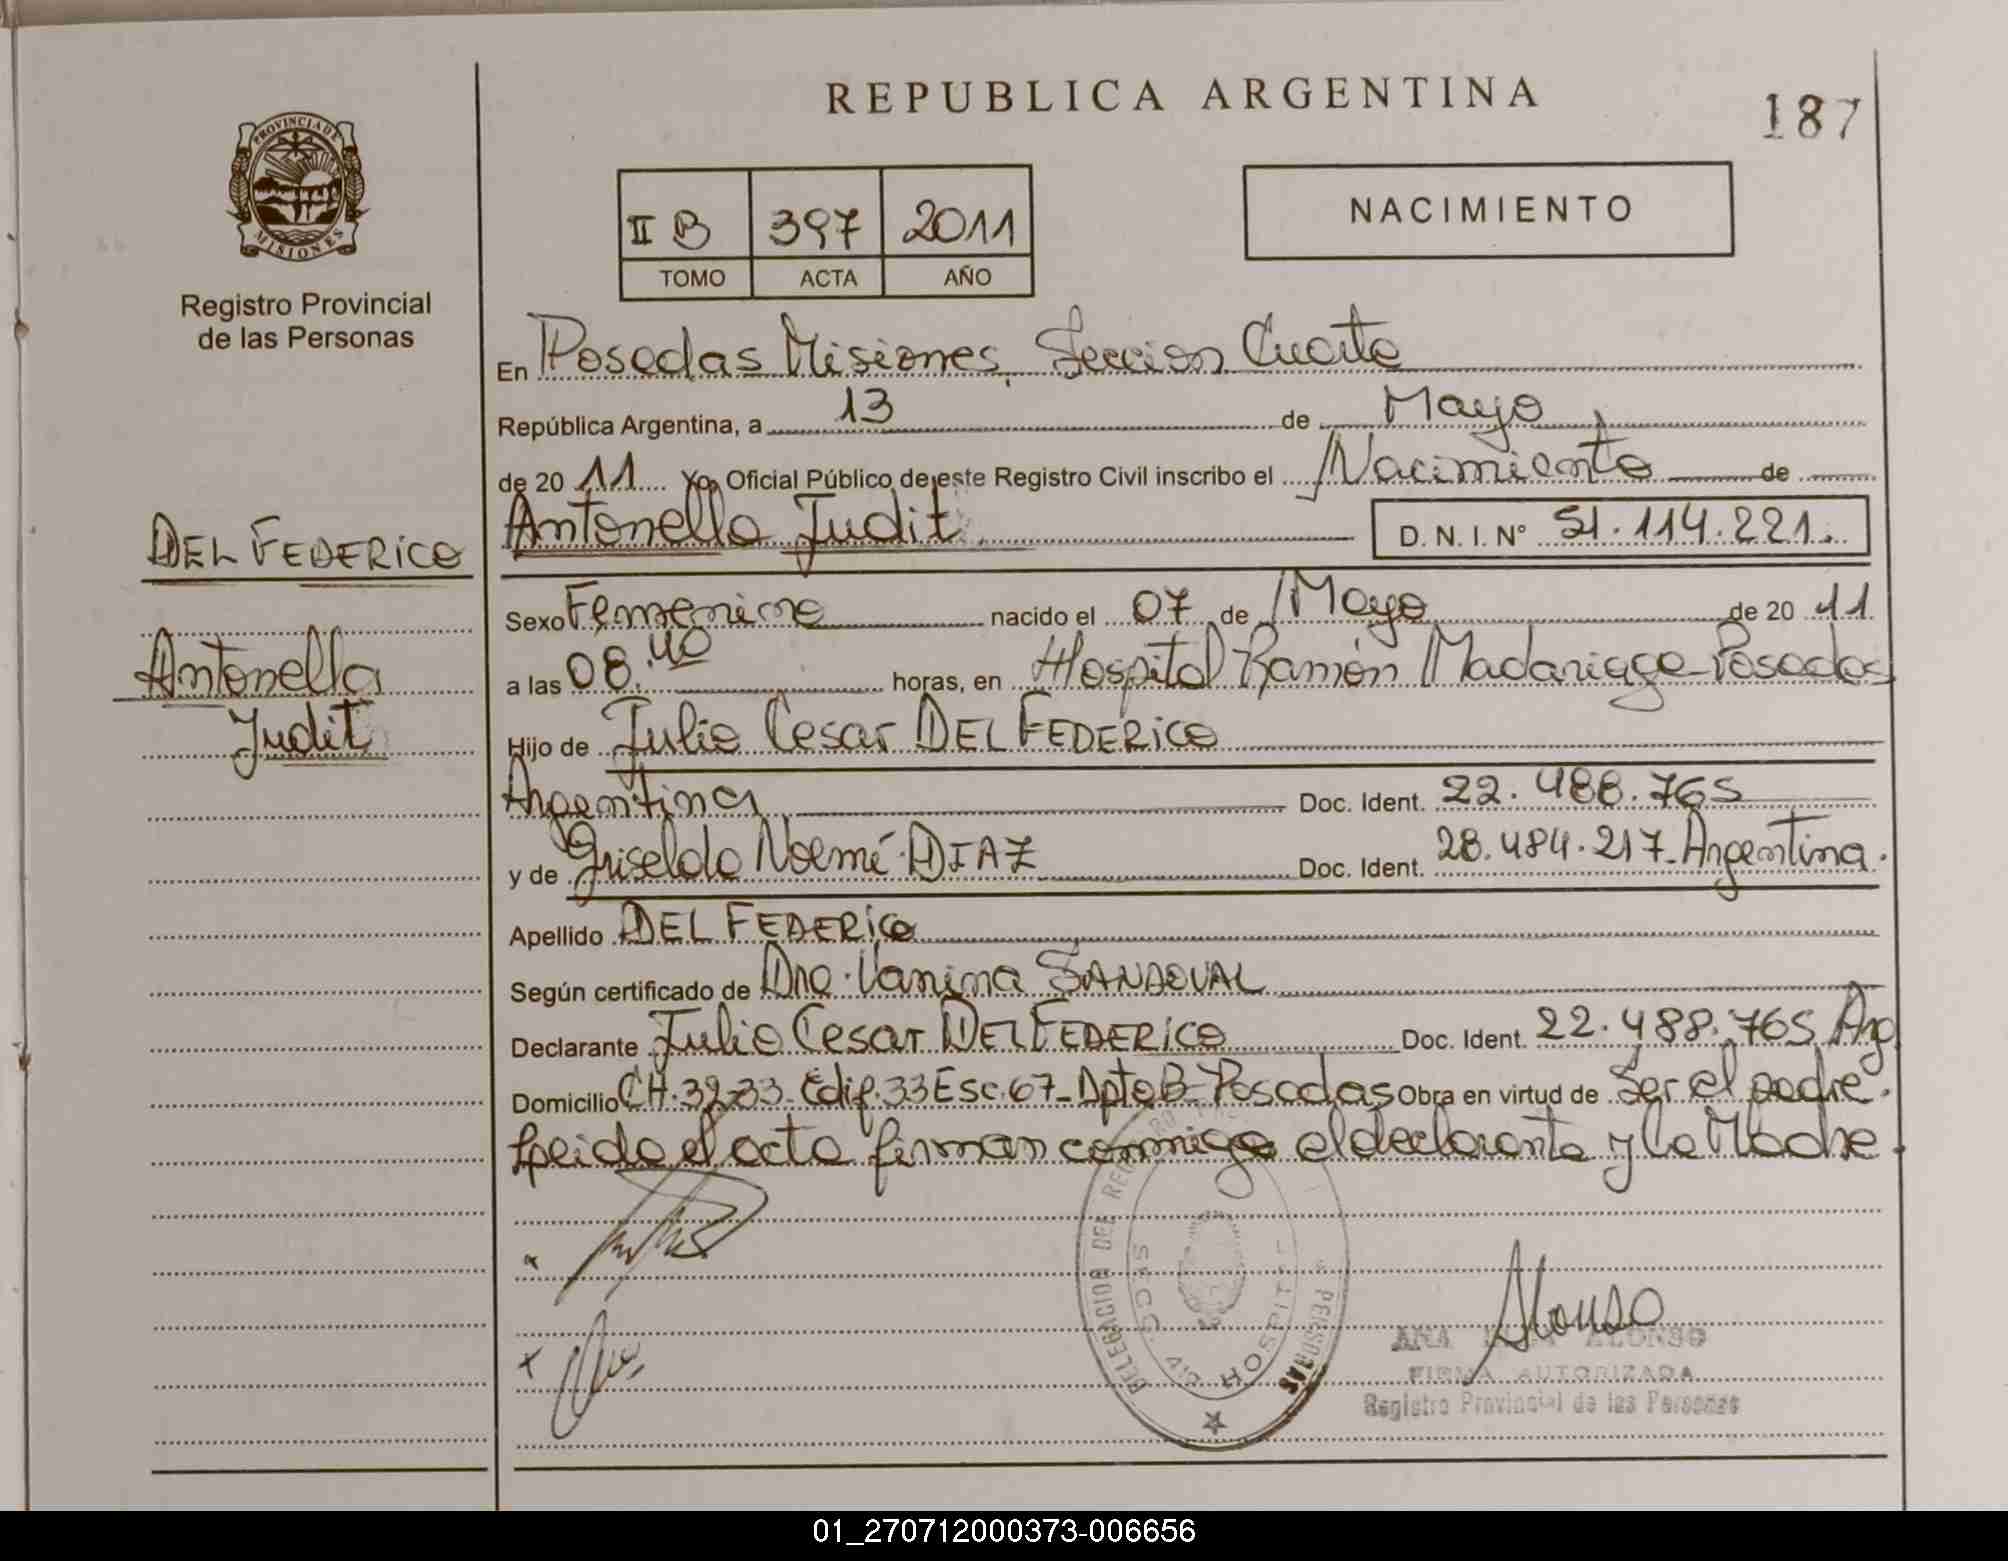 REPUBLICA ARGENTINA
187
PROVINCIA DE
MISIONES
Registro Provincial
de las Personas
II B 397 2011
TOMO ACTA AÑO
NACIMIENTO
En Posadas Misiones, Seccion Cuarta
República Argentina, a 13 de Mayo
de 20 11 Yo, Oficial Público de este Registro Civil inscribo el Nacimiento de
Antonella Judit D. N. I. Nº 51.114.221.
DEL FEDERICO
Antonella
Judit
Sexo Femenino nacido el 07 de Mayo de 20 11
a las 08:40 horas, en Hospital Ramón Madariaga-Posadas
Hijo de Julio Cesar DEL FEDERICO
Argentina Doc. Ident. 22.488.765
y de Griselda Noemí DIAZ Doc. Ident. 28.484.217-Argentina.
Apellido DEL FEDERICO
Según certificado de Dra. Vanina SANDOVAL
Declarante Julio Cesar DEL FEDERICO Doc. Ident. 22.488.765 Arg
Domicilio CH.32-33-Edif.33 Esc.67-Dpto B-Posadas Obra en virtud de Ser el padre.
Leida el acta firman conmigo el declarante y la Madre.
DELEGACION DEL PERSONAS
SECC. 4ta HOSPITAL
Alonso
ANA ALONSO
FIRMA AUTORIZADA
Registro Provincial de las Personas
01_270712000373-006656